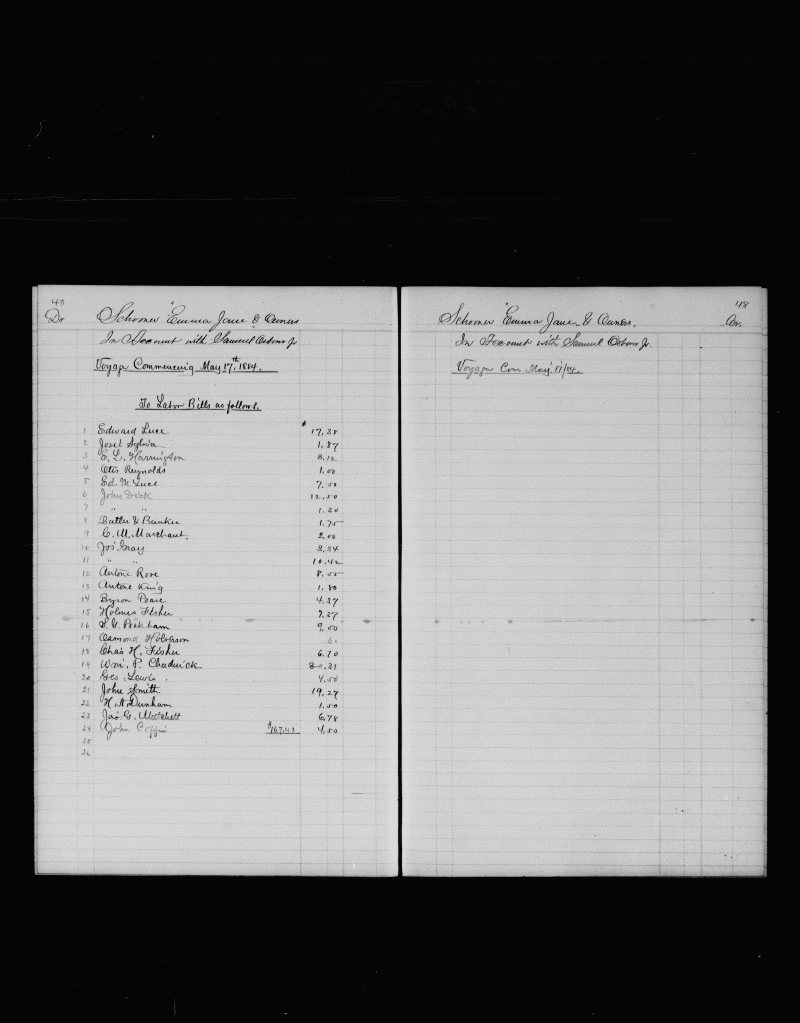 48
Dr Schooner "Emma Jane" & Owners
In Account with Samuel Osborn Jr
Voyage Commencing May 17th, 1884.
To Labor Bills as follows.
1 Edward Luce $ 17,38
2 José Sylvia 1,87
3 E. L. Harrington 8,12
4 Otis Reynolds 1,00
5 Ed. M. Luce 7,50
6 John 12,50
7 " " 1,30
8 Butler & Bunker 1,75
9 C. M. Marchant. 2,00
10 Jos. Gray 3,34
11 " " 10,42
12 Antone Rose 8,55
13 Antone King 1,80
14 Byron Pease 4,37
15 Holmes Fisher 7,37
16 Peakham 9,00
17 Osmond
18 Chas H. Fisher 6,70
19 Wm. P. Chadwick 30,31
20 Geo. Lewis 4,50
21 John Smith 19,27
22 H. N. Dunham 1,50
23 Jas G. Mitchell 6,78
24 John Coffin $167.43 4,50
25
26
48
Schooner "Emma Jane" & Owners. Cr.
In Account with Samuel Osborn Jr.
Voyage Com May 17/84.